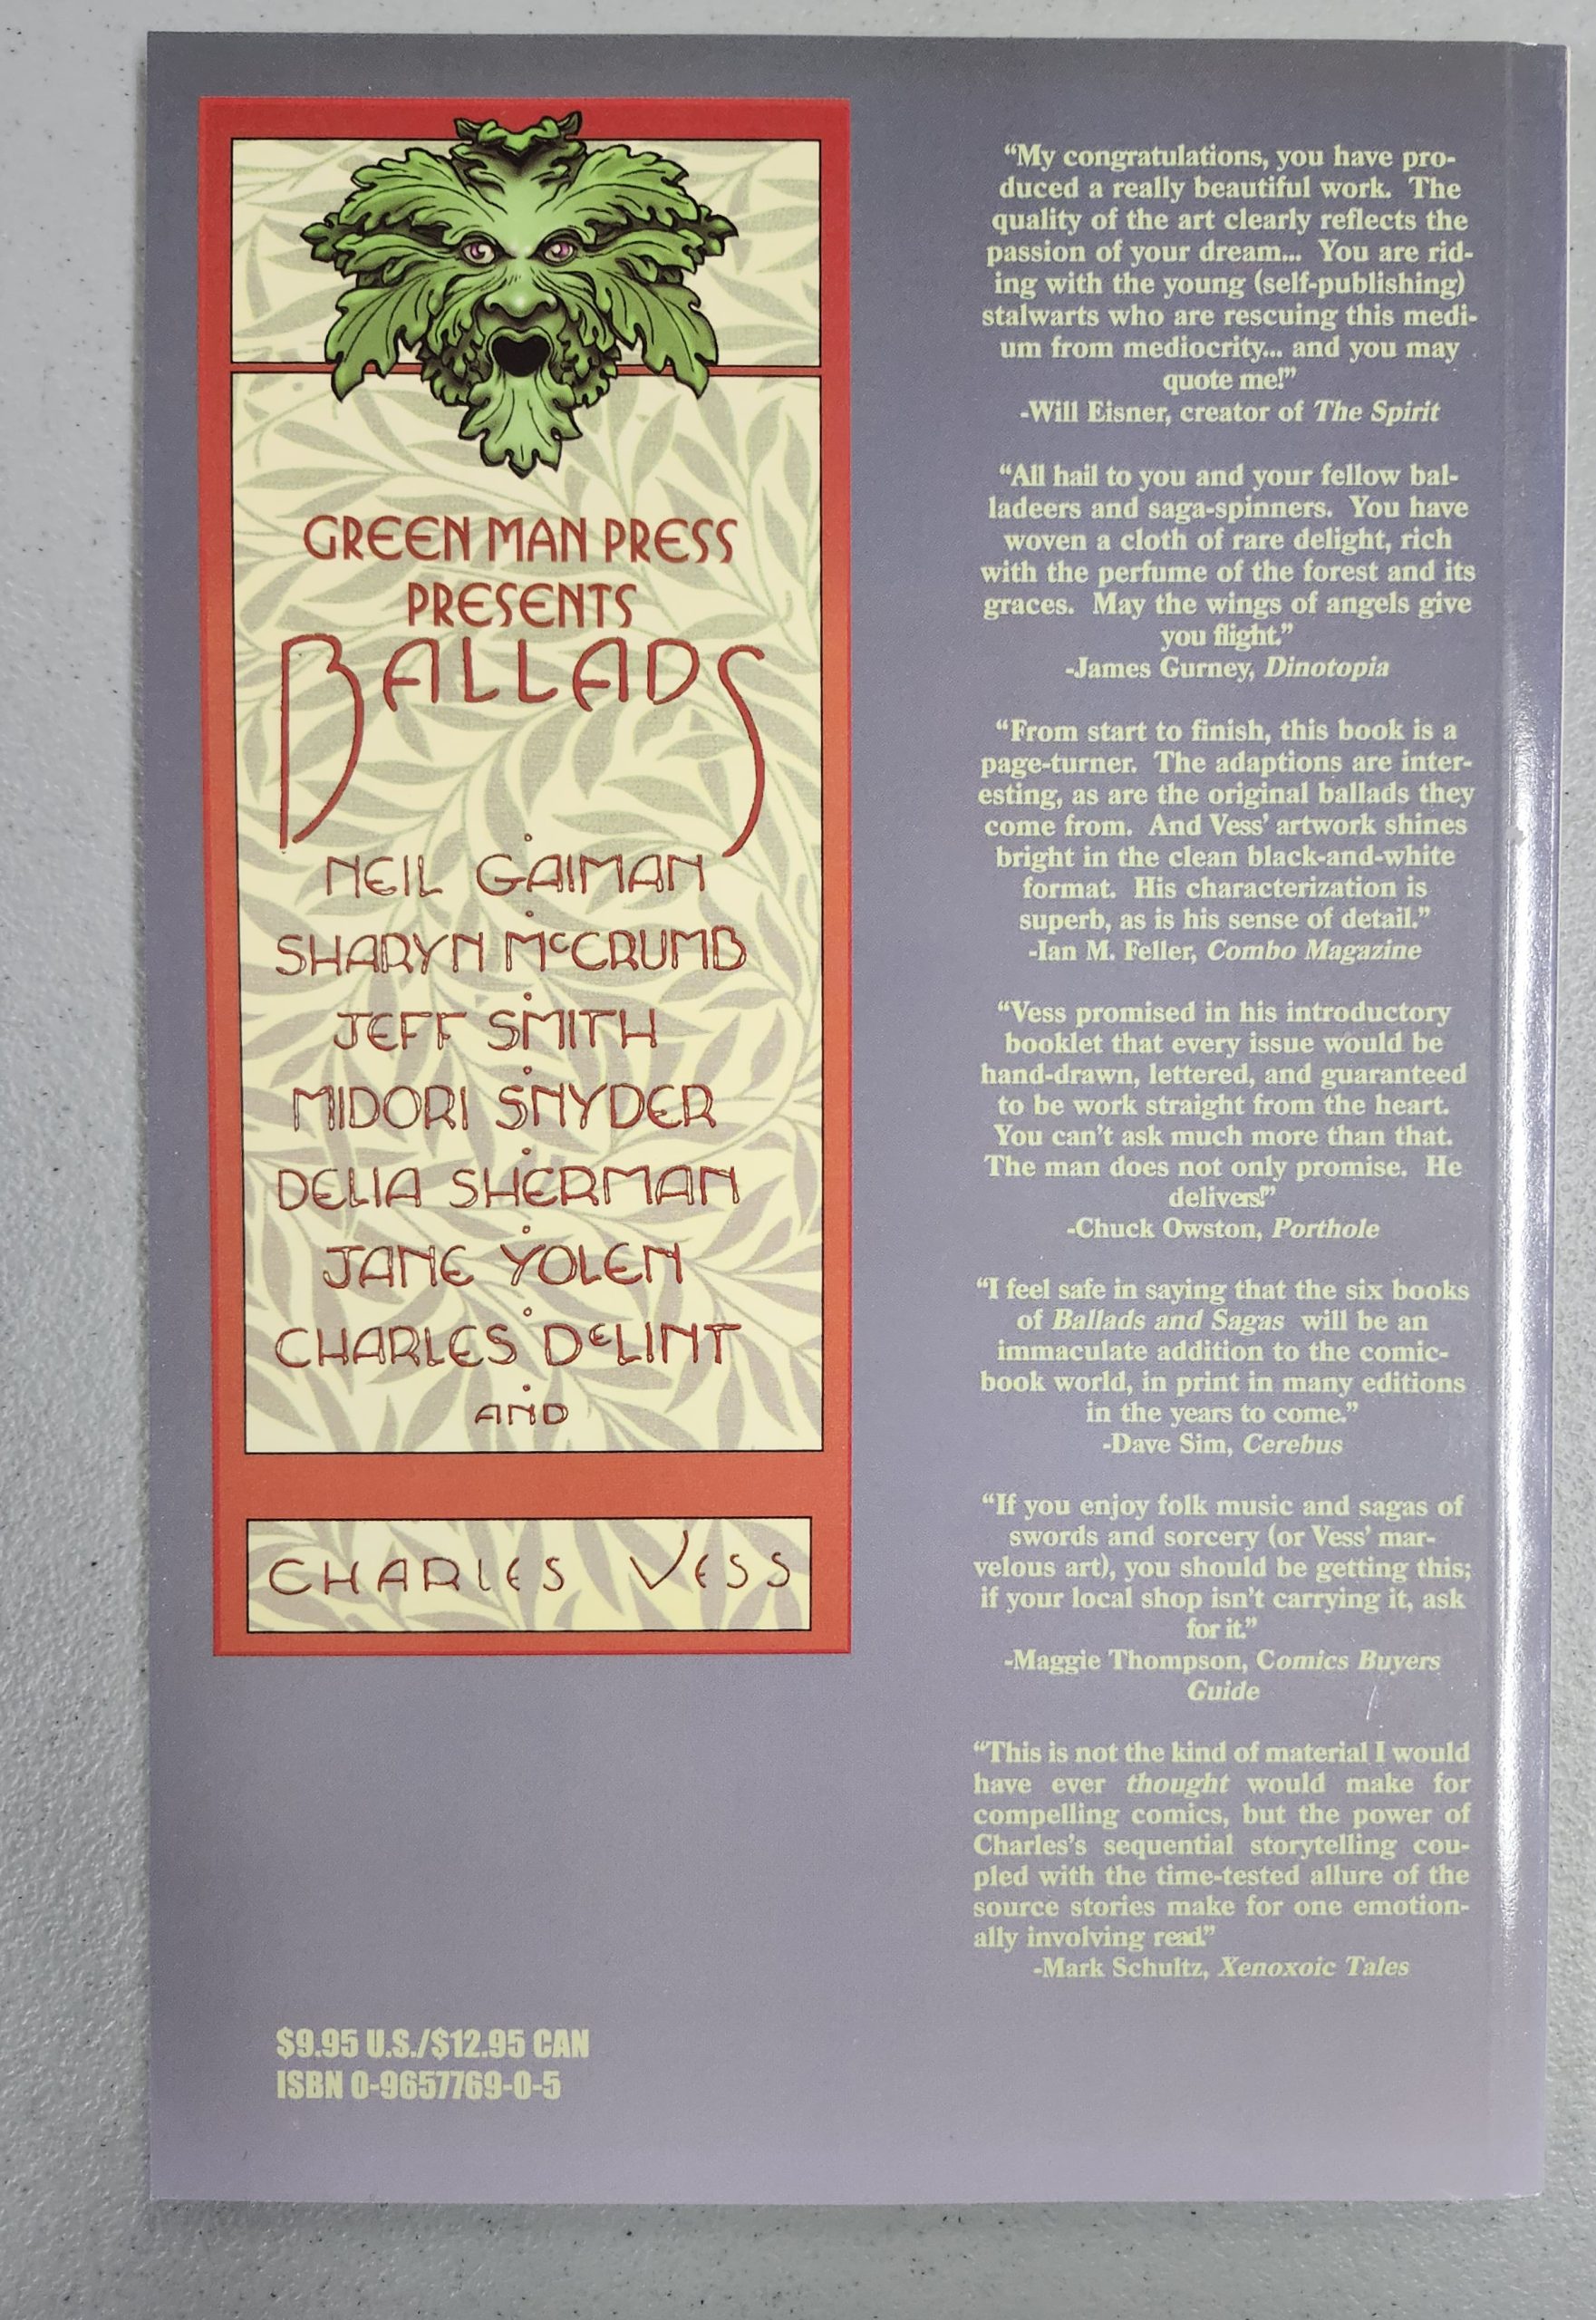 GREEN MAN PRESS
PRESENTS
BALLADS
NEIL GAIMAN
SHARYN McCRUMB
JEFF SMITH
MIDORI SNYDER
DELIA SHERMAN
JANE YOLEN
CHARLES DeLINT
AND
CHARLES VESS
$9.95 U.S./$12.95 CAN
ISBN 0-9657769-0-5
“My congratulations, you have pro-
duced a really beautiful work. The
quality of the art clearly reflects the
passion of your dream... You are rid-
ing with the young (self-publishing)
stalwarts who are rescuing this medi-
um from mediocrity... and you may
quote me!”
-Will Eisner, creator of The Spirit
“All hail to you and your fellow bal-
ladeers and saga-spinners. You have
woven a cloth of rare delight, rich
with the perfume of the forest and its
graces. May the wings of angels give
you flight.”
-James Gurney, Dinotopia
“From start to finish, this book is a
page-turner. The adaptions are inter-
esting, as are the original ballads they
come from. And Vess’ artwork shines
bright in the clean black-and-white
format. His characterization is
superb, as is his sense of detail.”
-Ian M. Feller, Combo Magazine
“Vess promised in his introductory
booklet that every issue would be
hand-drawn, lettered, and guaranteed
to be work straight from the heart.
You can’t ask much more than that.
The man does not only promise. He
delivers!”
-Chuck Owston, Porthole
“I feel safe in saying that the six books
of Ballads and Sagas will be an
immaculate addition to the comic-
book world, in print in many editions
in the years to come.”
-Dave Sim, Cerebus
“If you enjoy folk music and sagas of
swords and sorcery (or Vess’ mar-
velous art), you should be getting this;
if your local shop isn’t carrying it, ask
for it.”
-Maggie Thompson, Comics Buyers
Guide
“This is not the kind of material I would
have ever thought would make for
compelling comics, but the power of
Charles’s sequential storytelling cou-
pled with the time-tested allure of the
source stories make for one emotion-
ally involving read.”
-Mark Schultz, Xenoxoic Tales